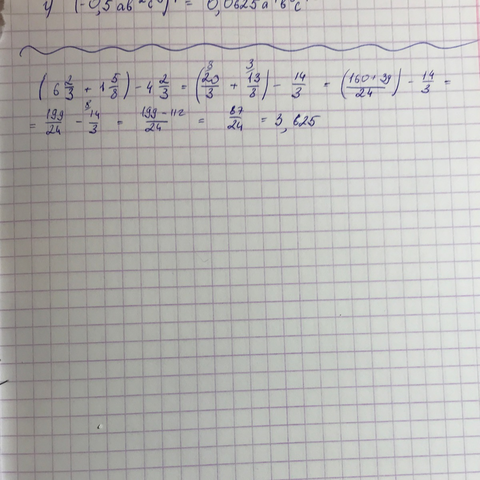 (-0,5ab²c³)⁴ = 0,0625a⁴b⁸c
(6 2/3 + 1 5/8) - 4 2/3 = (20/3 + 13/8) - 14/3 = (160+39/24) - 14/3 =
= 199/24 - 14/3 = 199-112/24 = 87/24 = 3,625